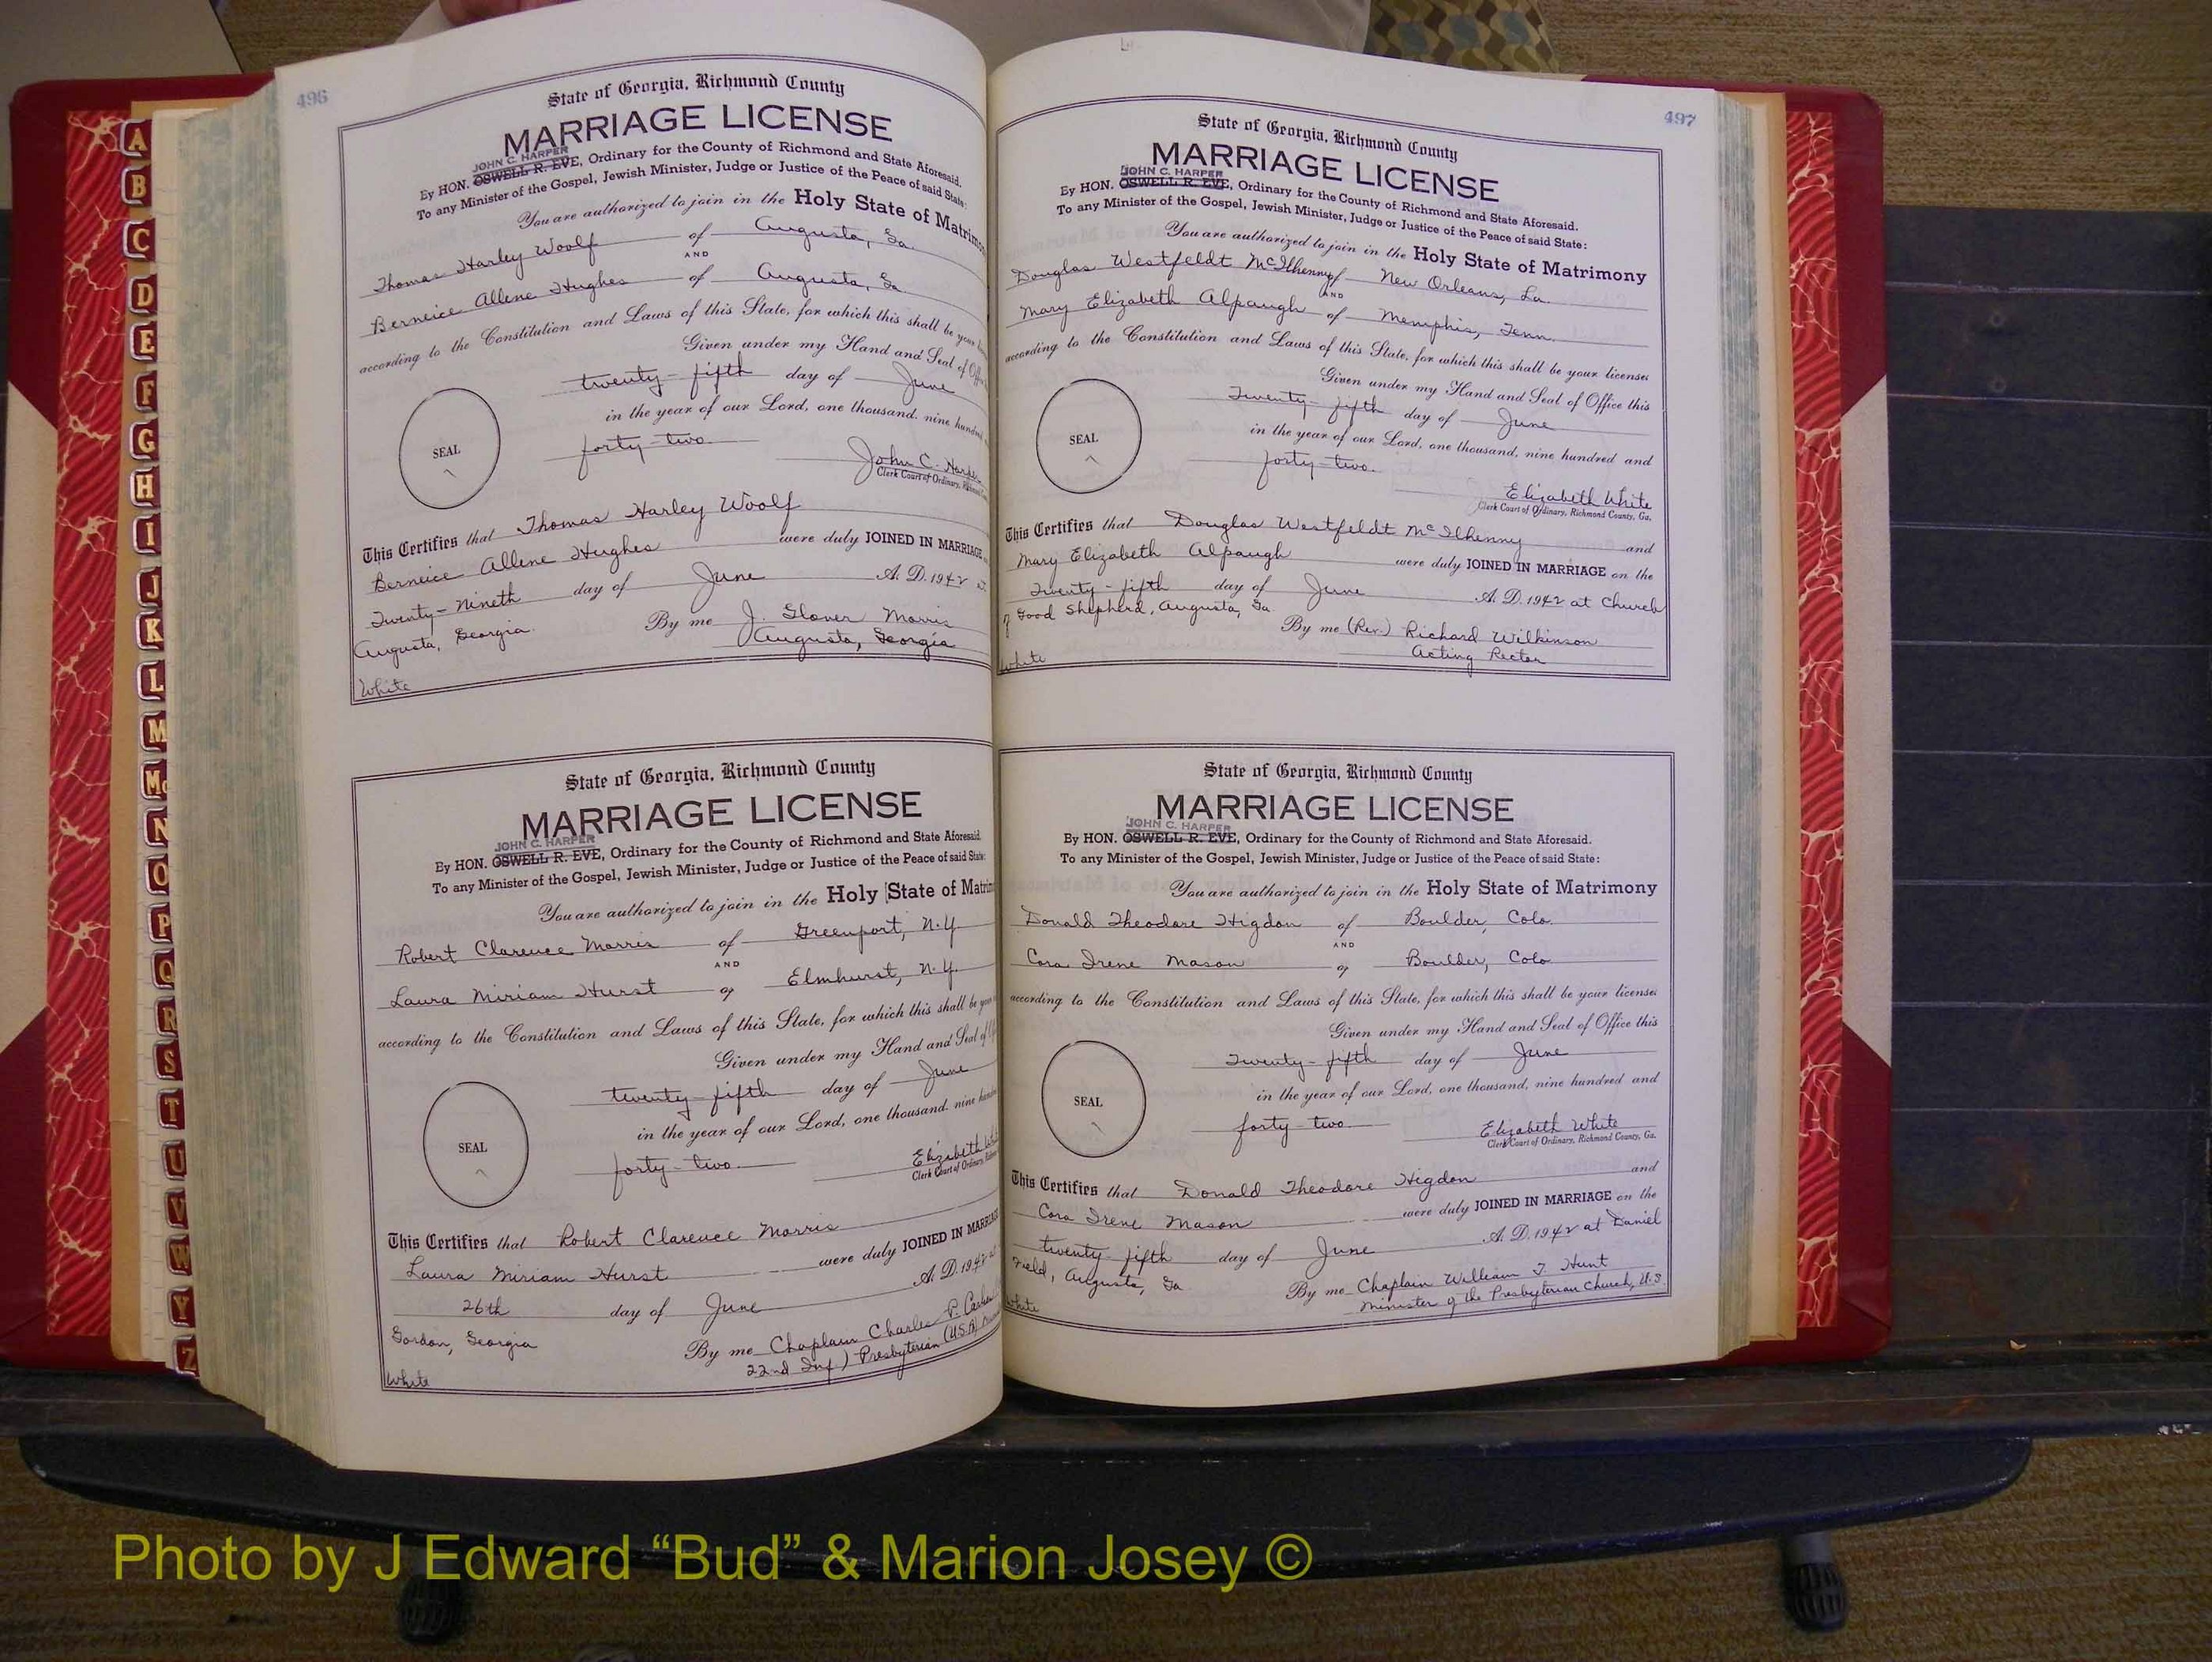 496
State of Georgia, Richmond County
MARRIAGE LICENSE
JOHN C. HARPER
By HON. OSWELL R. EVE, Ordinary for the County of Richmond and State Aforesaid.
To any Minister of the Gospel, Jewish Minister, Judge or Justice of the Peace of said State:
You are authorized to join in the Holy State of Matrimony
Thomas Harley Woolf of Augusta, Ga.
AND
Berneice Allene Hughes of Augusta, Ga.
according to the Constitution and Laws of this State, for which this shall be your
Given under my Hand and Seal of
twenty-fifth day of June
in the year of our Lord, one thousand, nine
forty-two
John C. Harper
Clerk Court of Ordinary,
SEAL
This Certifies that Thomas Harley Woolf
Berneice Allene Hughes were duly JOINED IN MARRIAGE
Twenty-Nineth day of June A. D. 1942 at
Augusta, Georgia. By me J. Glover Morris
Augusta, Georgia
White
State of Georgia, Richmond County
MARRIAGE LICENSE
JOHN C. HARPER
By HON. OSWELL R. EVE, Ordinary for the County of Richmond and State Aforesaid.
To any Minister of the Gospel, Jewish Minister, Judge or Justice of the Peace of said State:
You are authorized to join in the Holy State of
Robert Clarence Morris of Greenport, N.Y.
AND
Laura Miriam Hurst of Elmhurst, N.Y.
according to the Constitution and Laws of this State, for which this shall be
Given under my Hand and Seal of
twenty-fifth day of June
in the year of our Lord, one thousand, nine
forty-two.
Elizabeth
Clerk Court of Ordinary,
SEAL
This Certifies that Robert Clarence Morris
Laura Miriam Hurst were duly JOINED IN
26th day of June A. D. 1942
Gordon, Georgia By me Chaplain Charles P.
22nd Inf) Presbyterian (U.S.A)
White
497
State of Georgia, Richmond County
MARRIAGE LICENSE
JOHN C. HARPER
By HON. OSWELL R. EVE, Ordinary for the County of Richmond and State Aforesaid.
To any Minister of the Gospel, Jewish Minister, Judge or Justice of the Peace of said State:
You are authorized to join in the Holy State of Matrimony
Douglas Westfeldt McIlhenny of New Orleans, La.
AND
Mary Elizabeth Alpaugh of Memphis, Tenn.
according to the Constitution and Laws of this State, for which this shall be your license:
Given under my Hand and Seal of Office this
Twenty-fifth day of June
in the year of our Lord, one thousand, nine hundred and
forty-two.
Elizabeth White
Clerk Court of Ordinary, Richmond County, Ga.
SEAL
This Certifies that Douglas Westfeldt McIlhenny and
Mary Elizabeth Alpaugh were duly JOINED IN MARRIAGE on the
Twenty-fifth day of June A. D. 1942 at Church
of Good Shepherd, Augusta, Ga By me (Rev.) Richard Wilkinson
Acting Rector
White
State of Georgia, Richmond County
MARRIAGE LICENSE
JOHN C. HARPER
By HON. OSWELL R. EVE, Ordinary for the County of Richmond and State Aforesaid.
To any Minister of the Gospel, Jewish Minister, Judge or Justice of the Peace of said State:
You are authorized to join in the Holy State of Matrimony
Donald Theodore Higdon of Boulder, Colo.
AND
Cora Irene Mason of Boulder, Colo
according to the Constitution and Laws of this State, for which this shall be your license:
Given under my Hand and Seal of Office this
Twenty-fifth day of June
in the year of our Lord, one thousand, nine hundred and
forty-two
Elizabeth White
Clerk Court of Ordinary, Richmond County, Ga.
SEAL
This Certifies that Donald Theodore Higdon and
Cora Irene Mason were duly JOINED IN MARRIAGE on the
twenty-fifth day of June A. D. 1942 at Daniel
Field, Augusta, Ga By me Chaplain William T. Hunt
Minister of the Presbyterian Church, U.S.
White
A
B
C
D
E
F
G
H
I
J
K
L
M
Mc
N
O
P
Q
R
S
T
U
V
W
Y
Z
Photo by J Edward “Bud” & Marion Josey ©